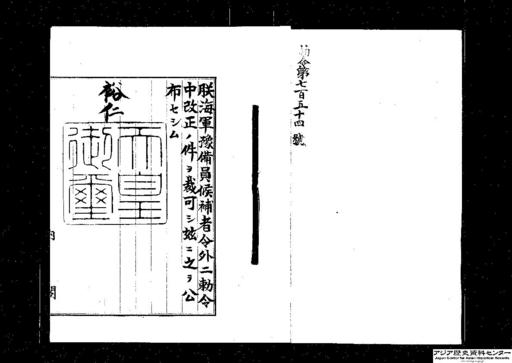 勅令第七百五十四號
朕海軍豫備員候補者令外二勅令
中改正ノ件ヲ裁可シ玆ニ之ヲ公
布セシム
裕仁
天皇
御璽
内閣
アジア歴史資料センター
Japan Center for Asian Historical Records